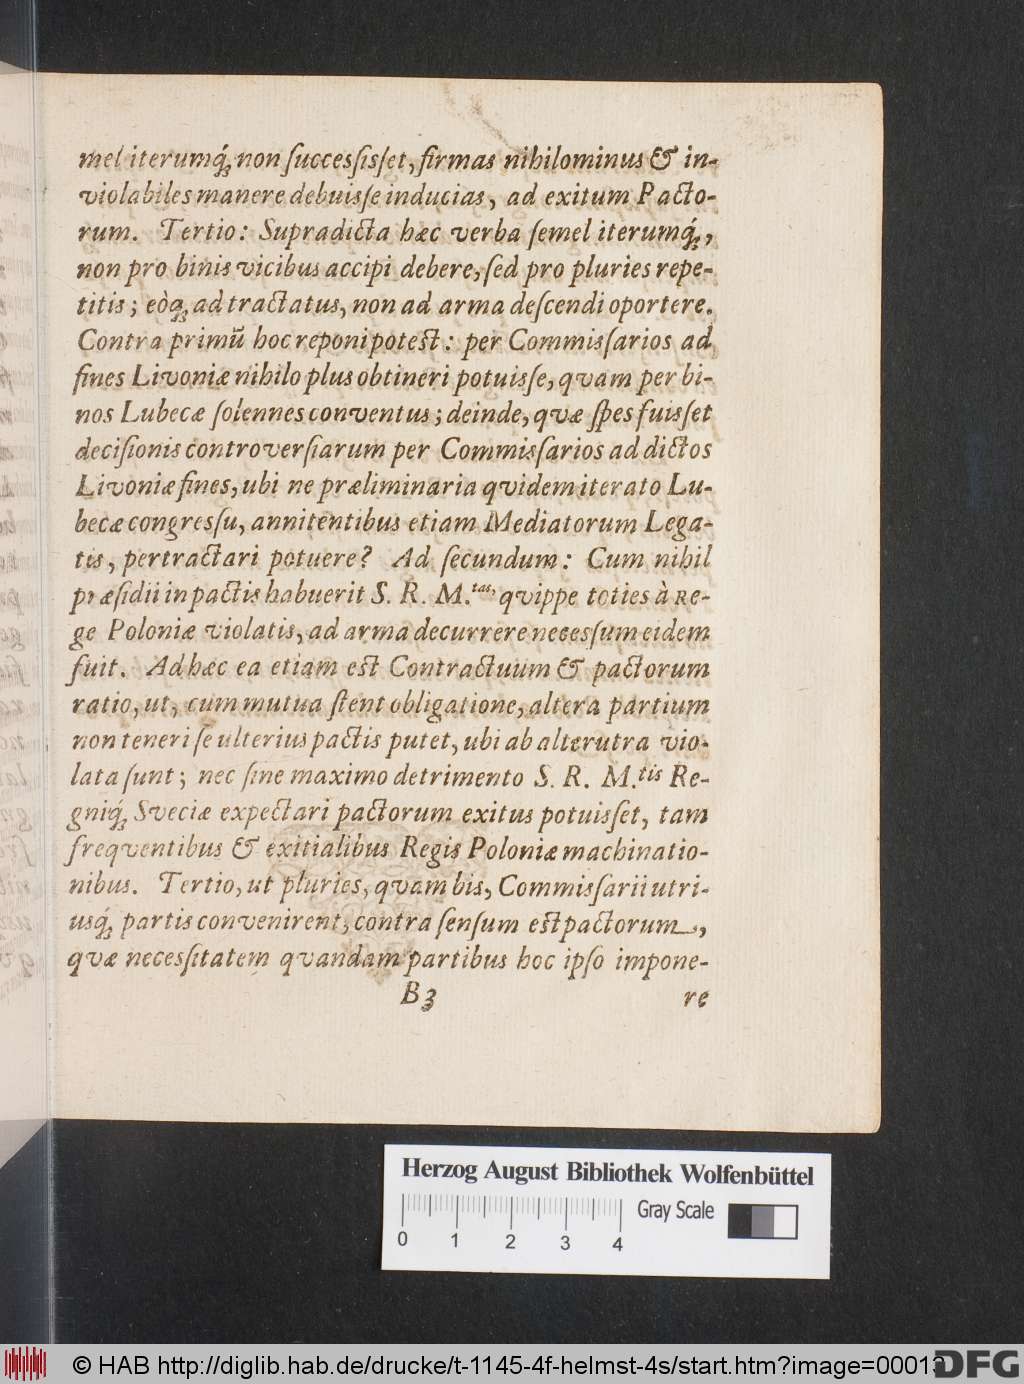 mel iterumq́ꝫ non ſuccesſisſet, firmas nihilominus & in-
violabiles manere debuisſe inducias, ad exitum Pacto-
rum. Tertio: Supradicta hæc verba ſemel iterumq́ꝫ,
non pro binis vicibus accipi debere, ſed pro pluries repe-
titis; eòqꝫ ad tractatus, non ad arma deſcendi oportere.
Contra primũ hoc reponi potest: per Commisſarios ad
fines Livoniæ nihilo plus obtineri potuisſe, qvam per bi-
nos Lubecæ ſolennes conventus; deinde, qvæ ſpes fuisſet
deciſionis controverſiarum per Commisſarios ad dictos
Livoniæ fines, ubi ne præliminaria qvidem iterato Lu-
becæ congresſu, annitentibus etiam Mediatorum Lega-
tis, pertractari potuere? Ad ſecundum: Cum nihil
præſidii in pactis habuerit S. R. M.tas, qvippe toties à Re-
ge Poloniæ violatis, ad arma decurrere necesſum eidem
fuit. Ad hæc ea etiam est Contractuum & pactorum
ratio, ut, cum mutua ſtent obligatione, altera partium
non teneri ſe ulterius pactis putet, ubi ab alterutra vio-
lata ſunt; nec ſine maximo detrimento S. R. M.tis Re-
gniq́ꝫ Sveciæ expectari pactorum exitus potuisſet, tam
freqventibus & exitialibus Regis Poloniæ machinatio-
nibus. Tertio, ut pluries, qvam bis, Commisſarii utri-
usq́ꝫ partis convenirent, contra ſenſum est pactorum,
qvæ necesſitatem qvandam partibus hoc ipſo impone-
B3 re
Herzog August Bibliothek Wolfenbüttel
Gray Scale
0 1 2 3 4
© HAB http://diglib.hab.de/drucke/t-1145-4f-helmst-4s/start.htm?image=00013
DFG